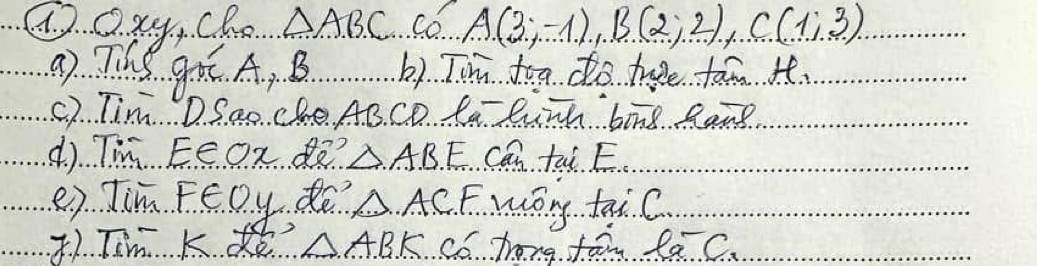 1. Oxy, cho △ABC có A(3;-1), B(2;2), C(1;3)
a) Tính góc A, B b) Tìm tọa độ trực tâm H.
c) Tìm D sao cho ABCD là hình bình hành.
d) Tìm E∈Ox để △ABE cân tại E.
e) Tìm F∈Oy để △ACF vuông tại C.
f) Tìm K để △ABK có trọng tâm là C.